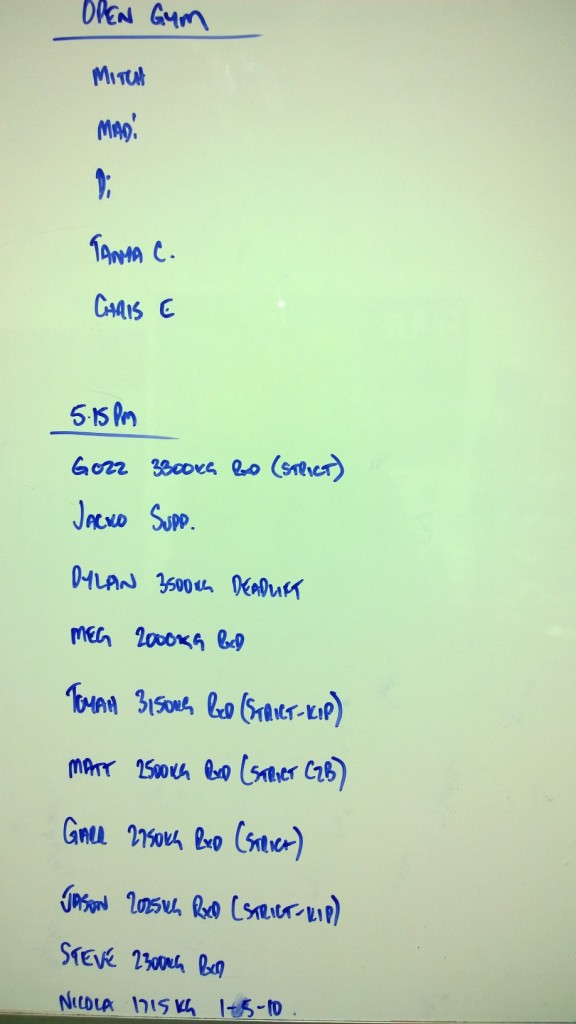 OPEN GYM
MITCH
MADI
Di
TANMA C.
CHRIS E
5.15PM
GOZZ 3300KG RxD (STRICT)
JACKO SUPP.
DYLAN 3500KG DEADLIFT
MEG 2000KG RxD
TOMAH 3150KG RxD (STRICT-KIP)
MATT 2500KG RxD (STRICT C2B)
2750KG RxD (STRICT)
JASON 2025KG RxD (STRICT-KIP)
STEVE 2300KG RxD
NICOLA 1715KG 1-5-10.